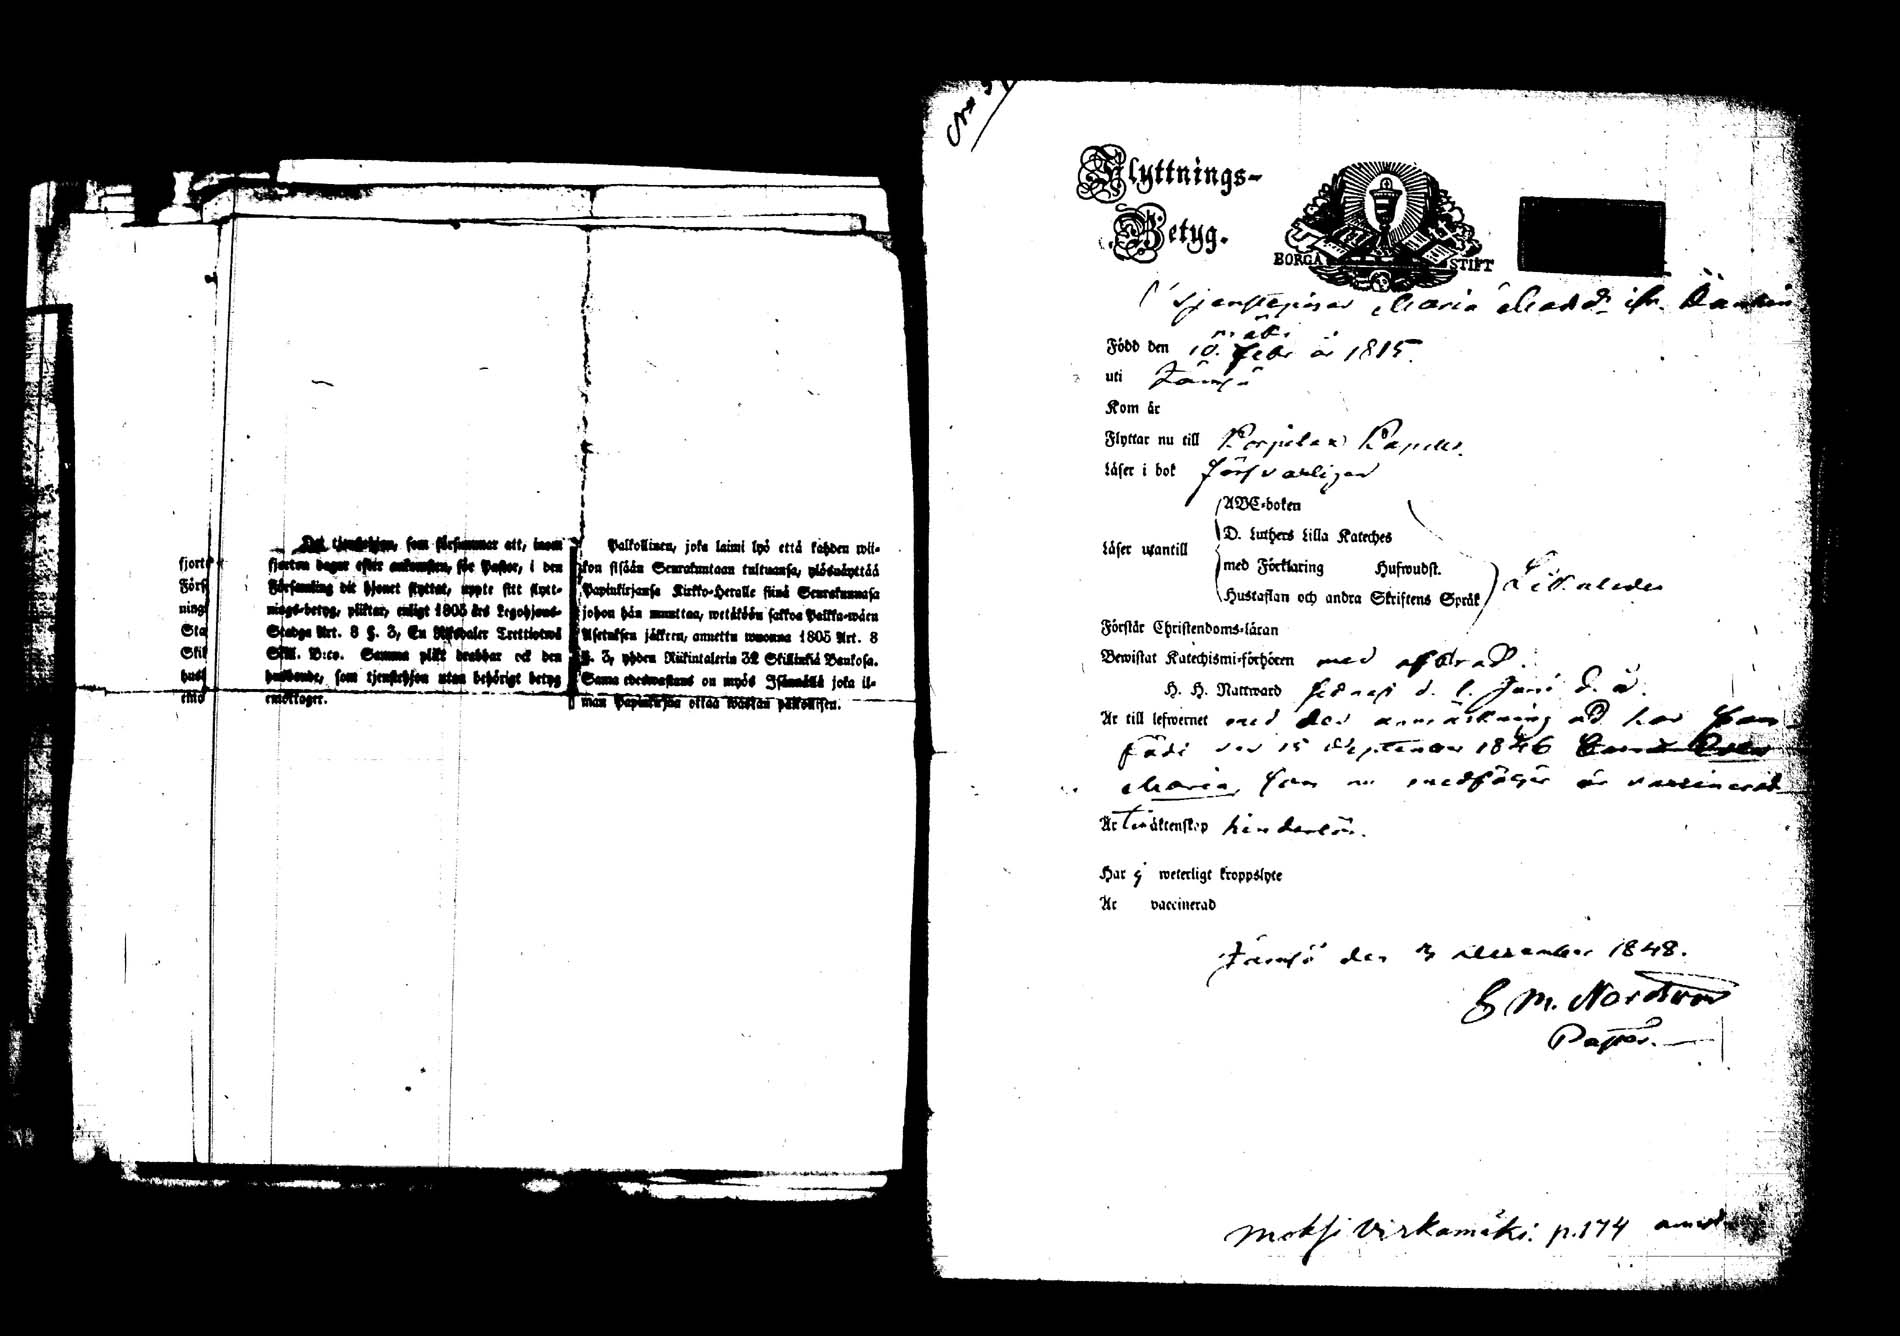 fjort
Förs
ning
Sta
Skil
husb
emo
Det tjenstehjon, som försummar att, inom
fjorton dagar efter ankomsten, för Pastor, i den
Församling dit hjonet flyttat, uppte sitt flytt-
nings-betyg, pliktar, enligt 1805 års Legohjons-
Stadga Art. 8 §. 3, En Riksdaler Trettiotwå
Skill. B:co. Samma plikt drabbar ock den
husbonde, som tjenstehjon utan behörigt betyg
emottager.
Palkollinen, joka laimi lyö että kahden wii-
kon sisään Seurakuntaan tultuansa, ylösnäyttää
Papinkirjansa Kirkko-Heralle siinä Seurakunnasa
johon hän muuttaa, wetäköön sakkoa Palkka-wäen
Asetuksen jälkeen, annettu wuonna 1805 Art. 8
§. 3, yhden Riikintalerin 32 Skillinkiä Bankosa.
Sama edeswastaus on myös Isännällä joka il-
man Papinkirjaa ottaa wastan palkollisen.
Flyttnings-
Betyg.
BORGÅ STIFT
Tjenstepigan Maria Madd:
mäki
Född den 10. Febr år 1815.
uti Jämsä
Kom år
Flyttar nu till Korpilax Kapell.
Läser i bok försvarligen
ABC-boken
D. Luthers Lilla Kateches
Läser utantill
med Förklaring Hufwudst.
Hustaflan och andra Skriftens Språk
Förstår Christendoms-läran
Bewistat Katechismi-förhören med
H. H. Nattward sednast d. 1. Juni d. å.
Är till lefwernet med den anmärkning att hon som
född den 15 September 1846
Maria, som nu medföljer är vaccinerad
Är till äktenskap hinderlös.
Har ej weterligt kroppslyte
Är vaccinerad
Jämsä den 3 December 1848.
E M. Nordström
Pastor.
Moksi Virkamäki. p. 174